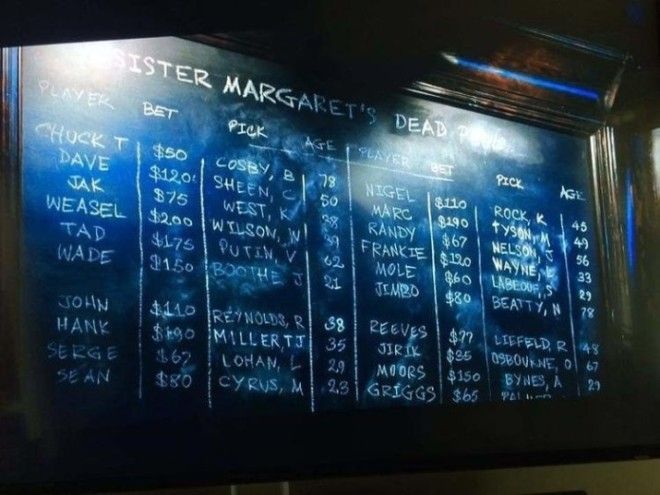 SISTER MARGARET'S DEAD
PLAYER BET PICK AGE
CHUCK T $50 COSBY, B 78
DAVE $120 SHEEN, C 50
JAK $75 WEST, K 38
WEASEL $200 WILSON, W
TAD $175 PUTIN, V 62
WADE $150 BOOTHE J 21
JOHN $110 REYNOLDS, R 38
HANK $190 MILLER TJ 35
SERGE $67 LOHAN, L 29
SEAN $80 CYRUS, M 23
PLAYER BET PICK AGE
NIGEL $110 ROCK, K 45
MARC $190 TYSON, M 49
RANDY $67 NELSON, J 56
FRANKIE $120 WAYNE, 33
MOLE $60 LABEOUF, S 29
JIMBO $80 BEATTY, N 78
REEVES $77 LIEFELD, R 48
JIRIK $35 OSBOURNE, O 67
MOORS $150 BYNES, A 29
GRIGGS $65